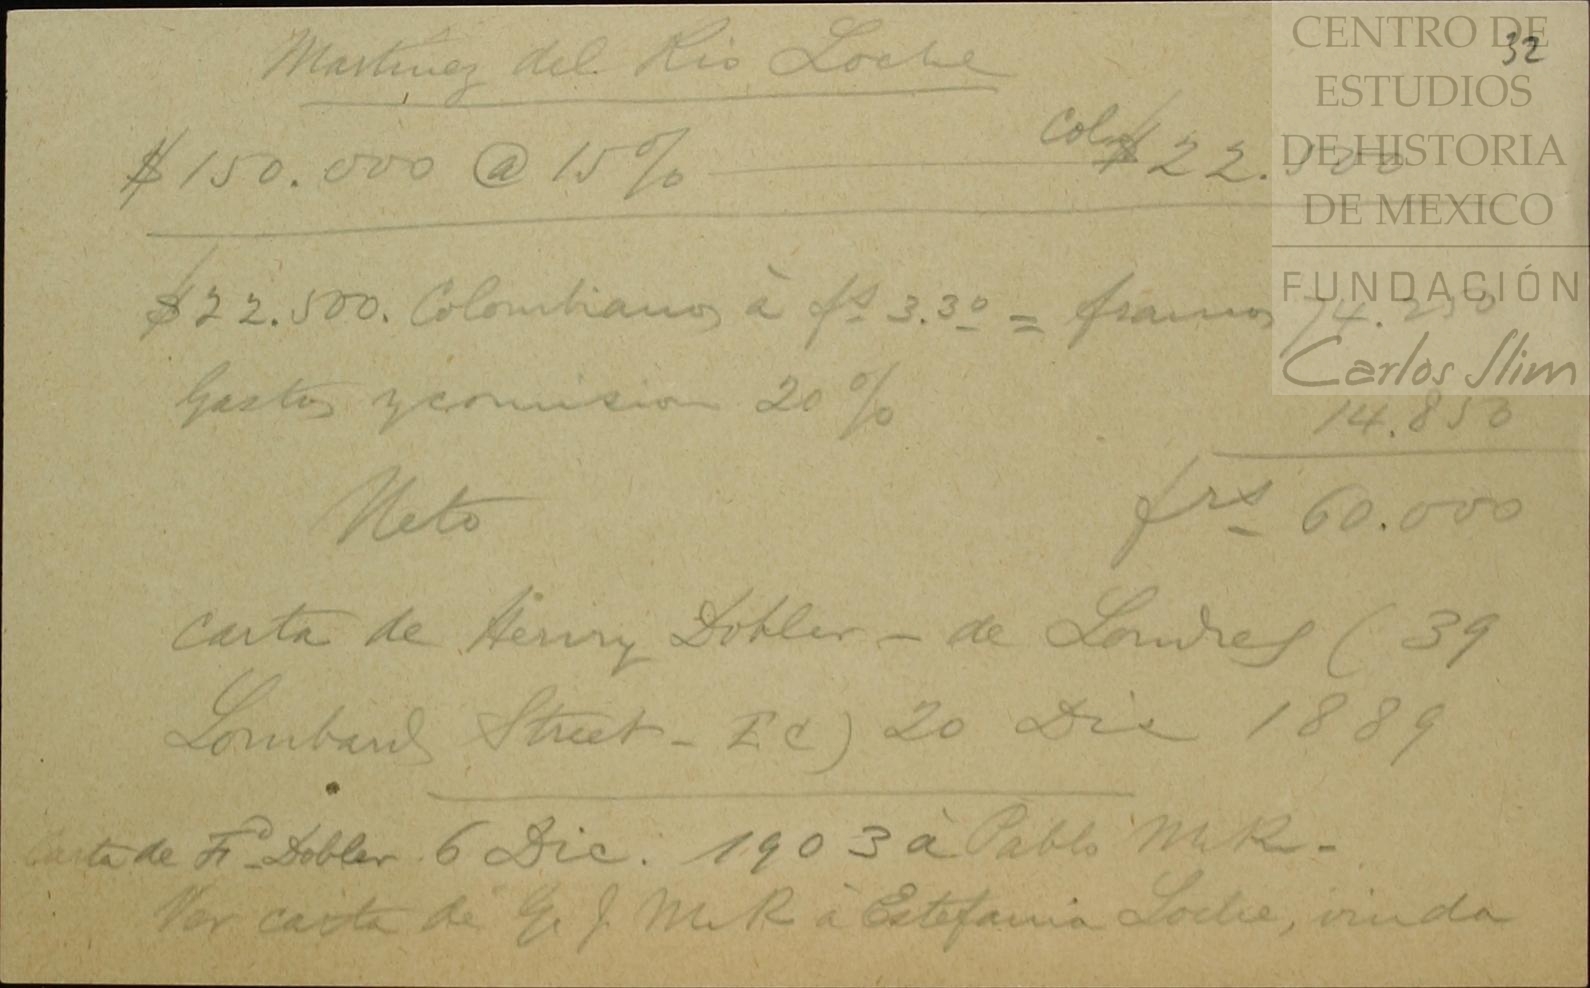 32
Martinez del Rio Loche
$150.000 @ 15% Col $22.500
$22.500. Colombianos à fs 3.30 = francos 74.250
Gastos y comision 20% 14.850
Neto frs 60.000
Carta de Henry Dobler - de Londres (39
Lombard Street - E C) 20 Dic 1889
Carta de Fd Dobler 6 Dic. 1903 à Pablo M R -
Ver carta de G. J. M R à Estefania Loche, viuda
CENTRO DE
ESTUDIOS
DE HISTORIA
DE MEXICO
FUNDACIÓN
Carlos Slim